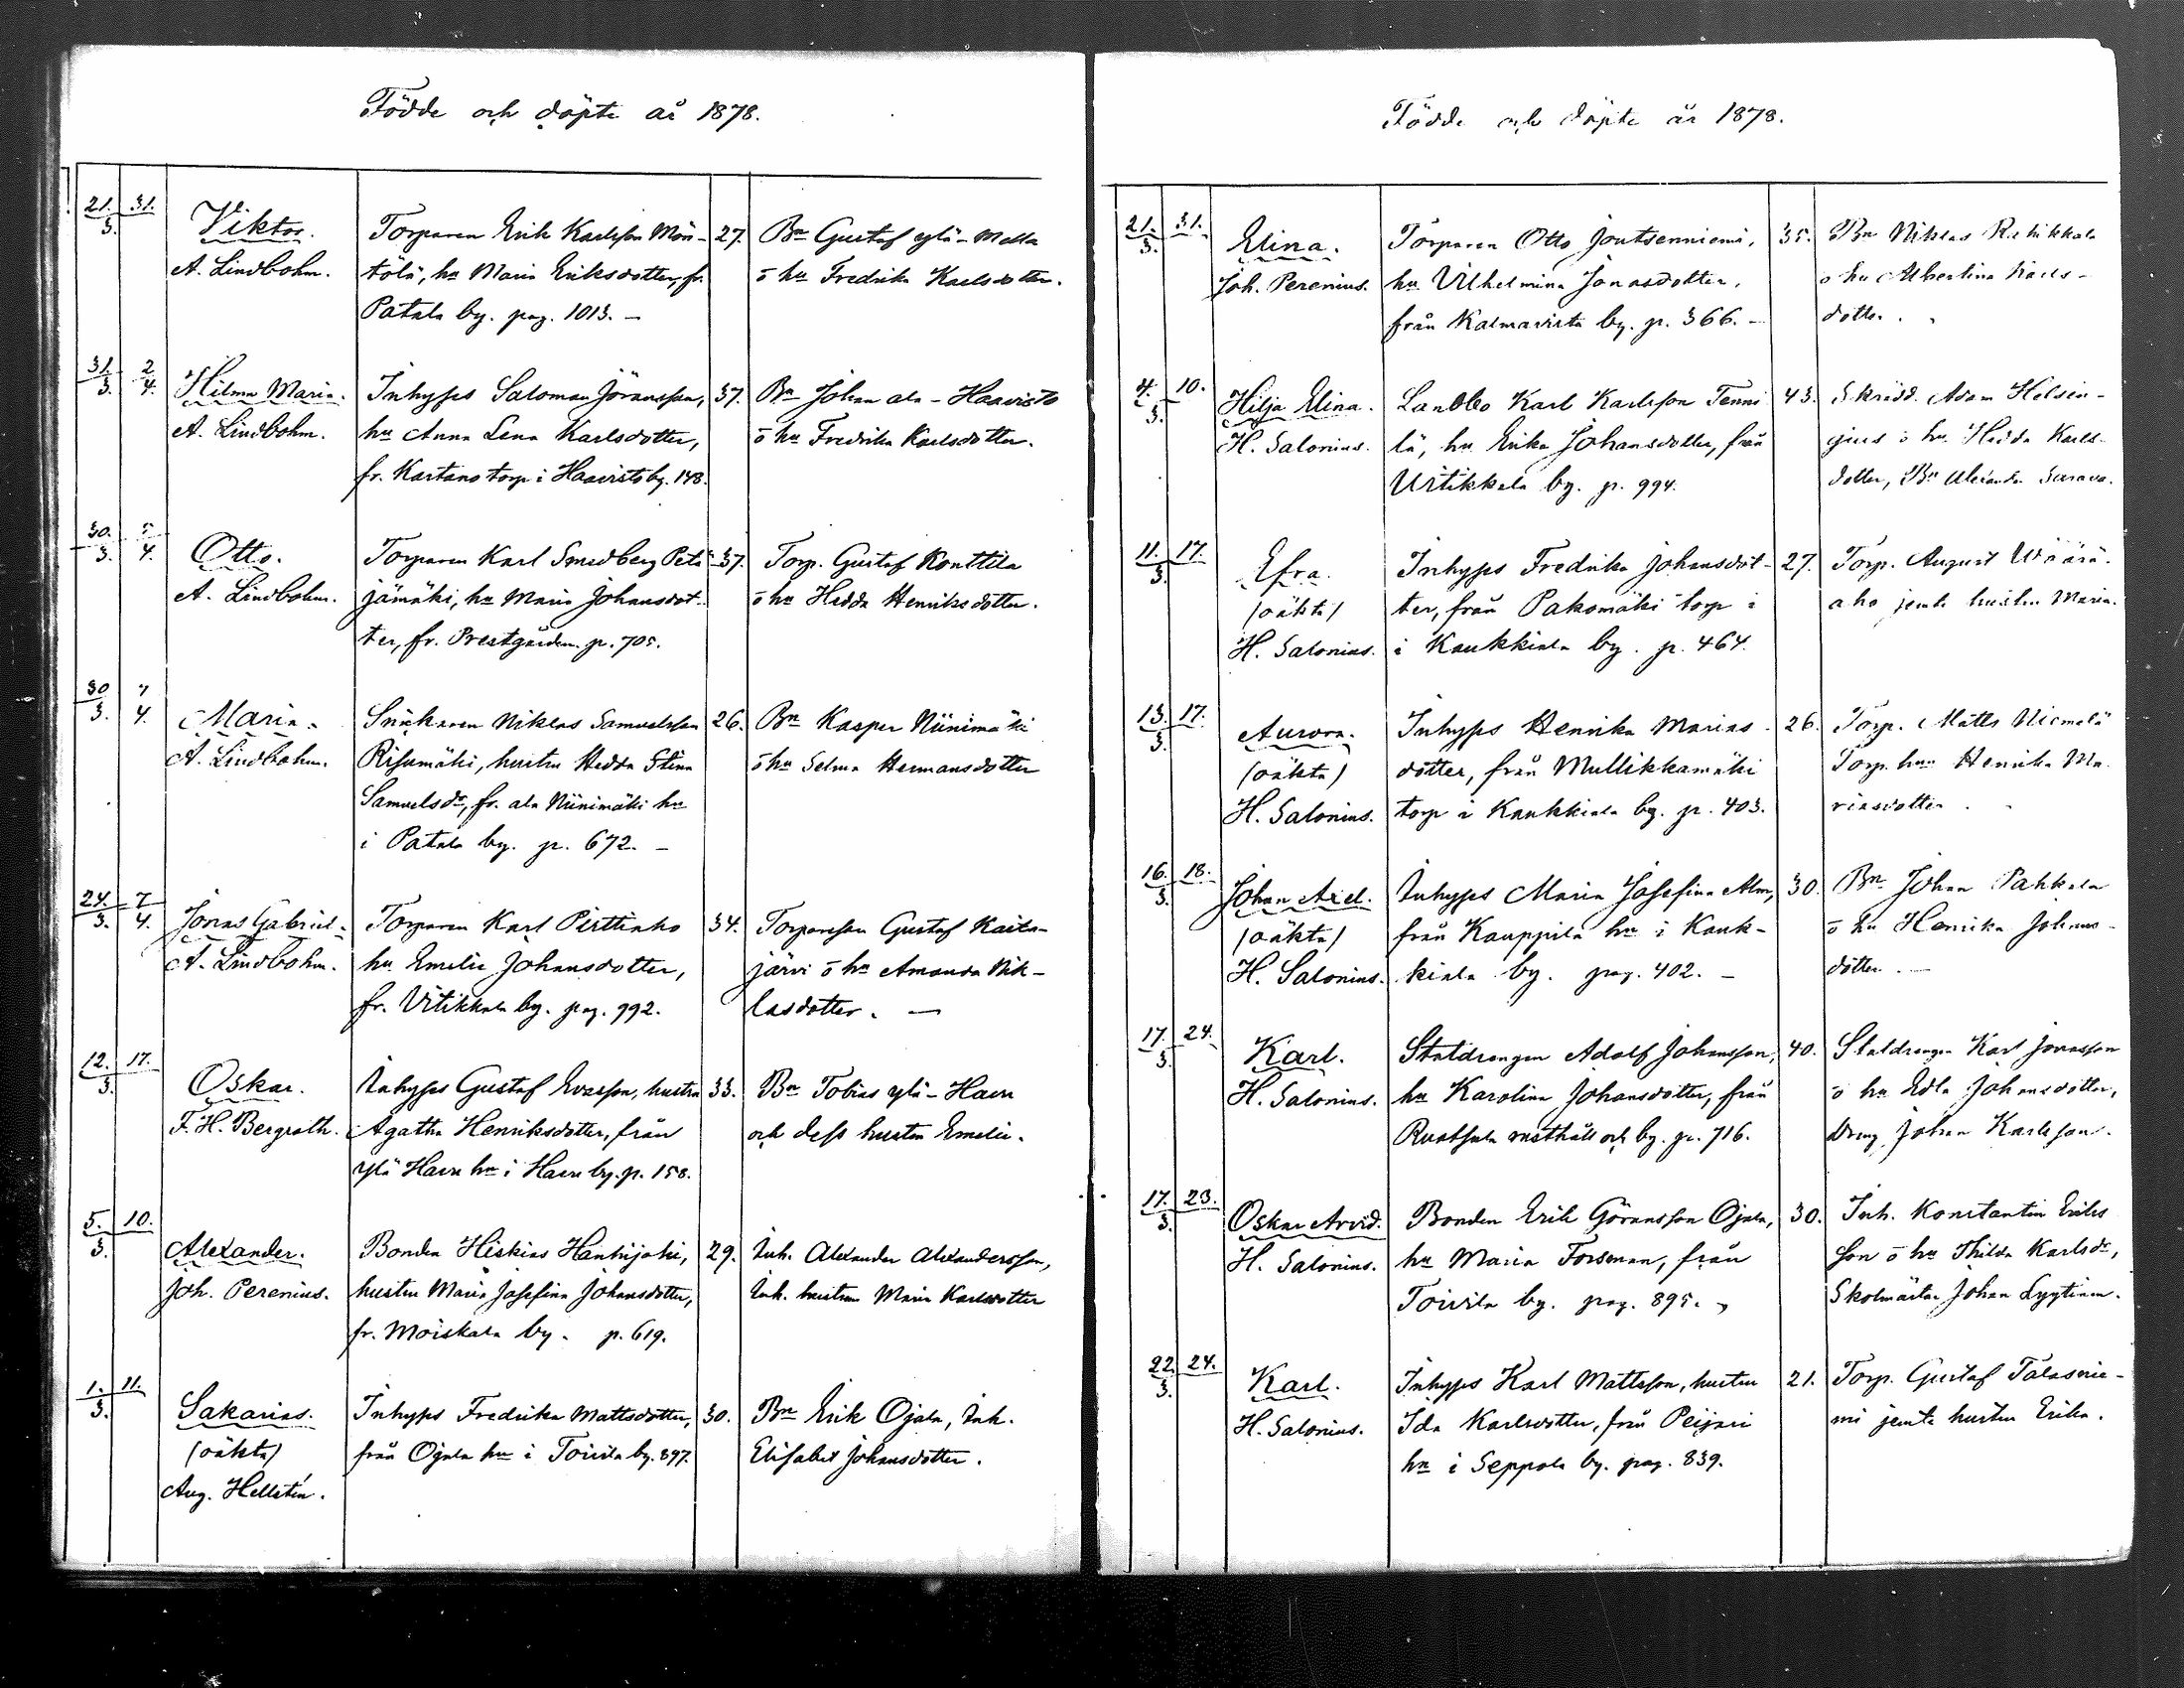 Födde och döpte år 1878.
21. 31.
3.
Viktor. Torparen Erik Karlsson Mön- 27. Bn Gustaf ylä-Mella
A. Lindbohm. tölä, hu Maria Eriksdotter, fr. o hu Fredrika Karlsdotter.
Patala by. pag. 1013. –
31. 2
3. 4.
Hilma Maria. Inhyses Saloman Jöransson, 37. Bn Johan ala-Haavisto
A. Lindbohm. hu Anna Lena Karlsdotter, o hu Fredrika Karlsdotter.
fr. Kartano torp i Haavisto by. 148.
30.
3. 4.
Otto. Torparen Karl Smedberg Petä- 37. Torp. Gustaf Konttila
A. Lindbohm. jämäki, hu Maria Johansdot- o hu Hedda Henriksdotter.
ter, fr. Prestgården. p. 705.
30 7
3. 4.
Maria. Snikaren Niklas Samuelsson 26. Bn Kasper Niinimäki
A. Lindbohm. hustru Hedda Stina o hu Selma Hermansdotter
Samuelsdr, fr. ala Niinimäki hn
i Patala by. p. 672. –
24. 7
3. 4.
Jonas Gabriel. Torparen Karl Pirttiaho 34. Torparson Gustaf Kaita-
A. Lindbohm. hu Emelie Johansdotter, järvi o hu Amanda Nik-
fr. Vitikkala by. pag. 992. lasdotter. –
12. 17.
3.
Oskar. Inhyses Gustaf Evasson, hustru 33. Bn Tobias ylä-Havu
F. H. Bergroth. Agatha Henriksdotter, från och dess hustru Emelie.
ylä Havu hn i Havu by. p. 158.
5. 10.
3.
Alexander. Bonden Hiskias Hankijoki, 29. Inh. Alexander Alexandersson,
Joh. Perenius. hustru Maria Josefina Johansdotter, Inh. hustrun Maria Karlsdotter
fr. Moiskala by. p. 619.
1. 11.
3.
Sakarias. Inhyses Fredrika Mattsdotter, 30. Bn Erik Ojala, Inh.
(oäkta) från Ojala hn i Toivila by. 897. Elisabet Johansdotter.
Aug. Hellstén.
Födde och döpte år 1878.
21. 31.
3.
Elina. Torparen Otto Joutsenniemi, 35. Bn Niklas
Joh. Perenius. hu Vilhelmina Jonasdotter, o hu Albertina Karls-
från Kalmavirta by. p. 366. – dotter.
4. 10.
3.
Hilja Elina. Landbo Karl Karlsson Tenni 43. Skrädd. Adam Helsin-
H. Salonius. lä, hu Erika Johansdotter, från gius o hu Hedda Karls-
Vitikkala by. p. 994. dotter, Bn Alexander
11. 17.
3.
Efra. Inhyses Fredrika Johansdot- 27. Torp. August Väärä-
(oäkta) ter, från Pakomäki torp i aho jemte hustru Maria.
H. Salonius. i Kaukkiala by. p. 464.
13. 17.
3.
Aurora. Inhyses Henrika Marias- 26. Torp. Matts Niemelä
(oäkta) dotter, från Mullikkamäki Torp. hun Henrika Ma
H. Salonius. torp i Kaukkiala by. p. 403. riasdotter.
16. 18.
3.
Johan Axel. Inhyses Maria Josefina Alm, 30. Bn Johan Pahkala
(oäkta) från Kauppila hn i Kauk- o hu Henrika Johans-
H. Salonius. kiala by. pag. 402. – dotter. –
17. 24.
3.
Karl. Staldrängen Adolf Johansson, 40. Staldrängen Karl Jonasson
H. Salonius. hu Karolina Johansdotter, från o hu Edla Johansdotter,
Ruatsala rusthåll och by. p. 716. Dräng Johan Karlsson.
17. 23.
3.
Oskar Arvid. Bonden Erik Göransson Ojala, 30. Inh. Konstantin Eriks
H. Salonius. hu Maria Forsman, från son o hu Thilda Karlsdr,
Toivila by. pag. 895. Skolmästar Johan Lyytinen.
22. 24.
3.
Karl. Inhyses Karl Mattsson, hustru 21. Torp. Gustaf Talasnie-
H. Salonius. Ida Karlsdotter, från Peijari mi jemte hustru Erika.
hn i Seppola by. pag. 839.